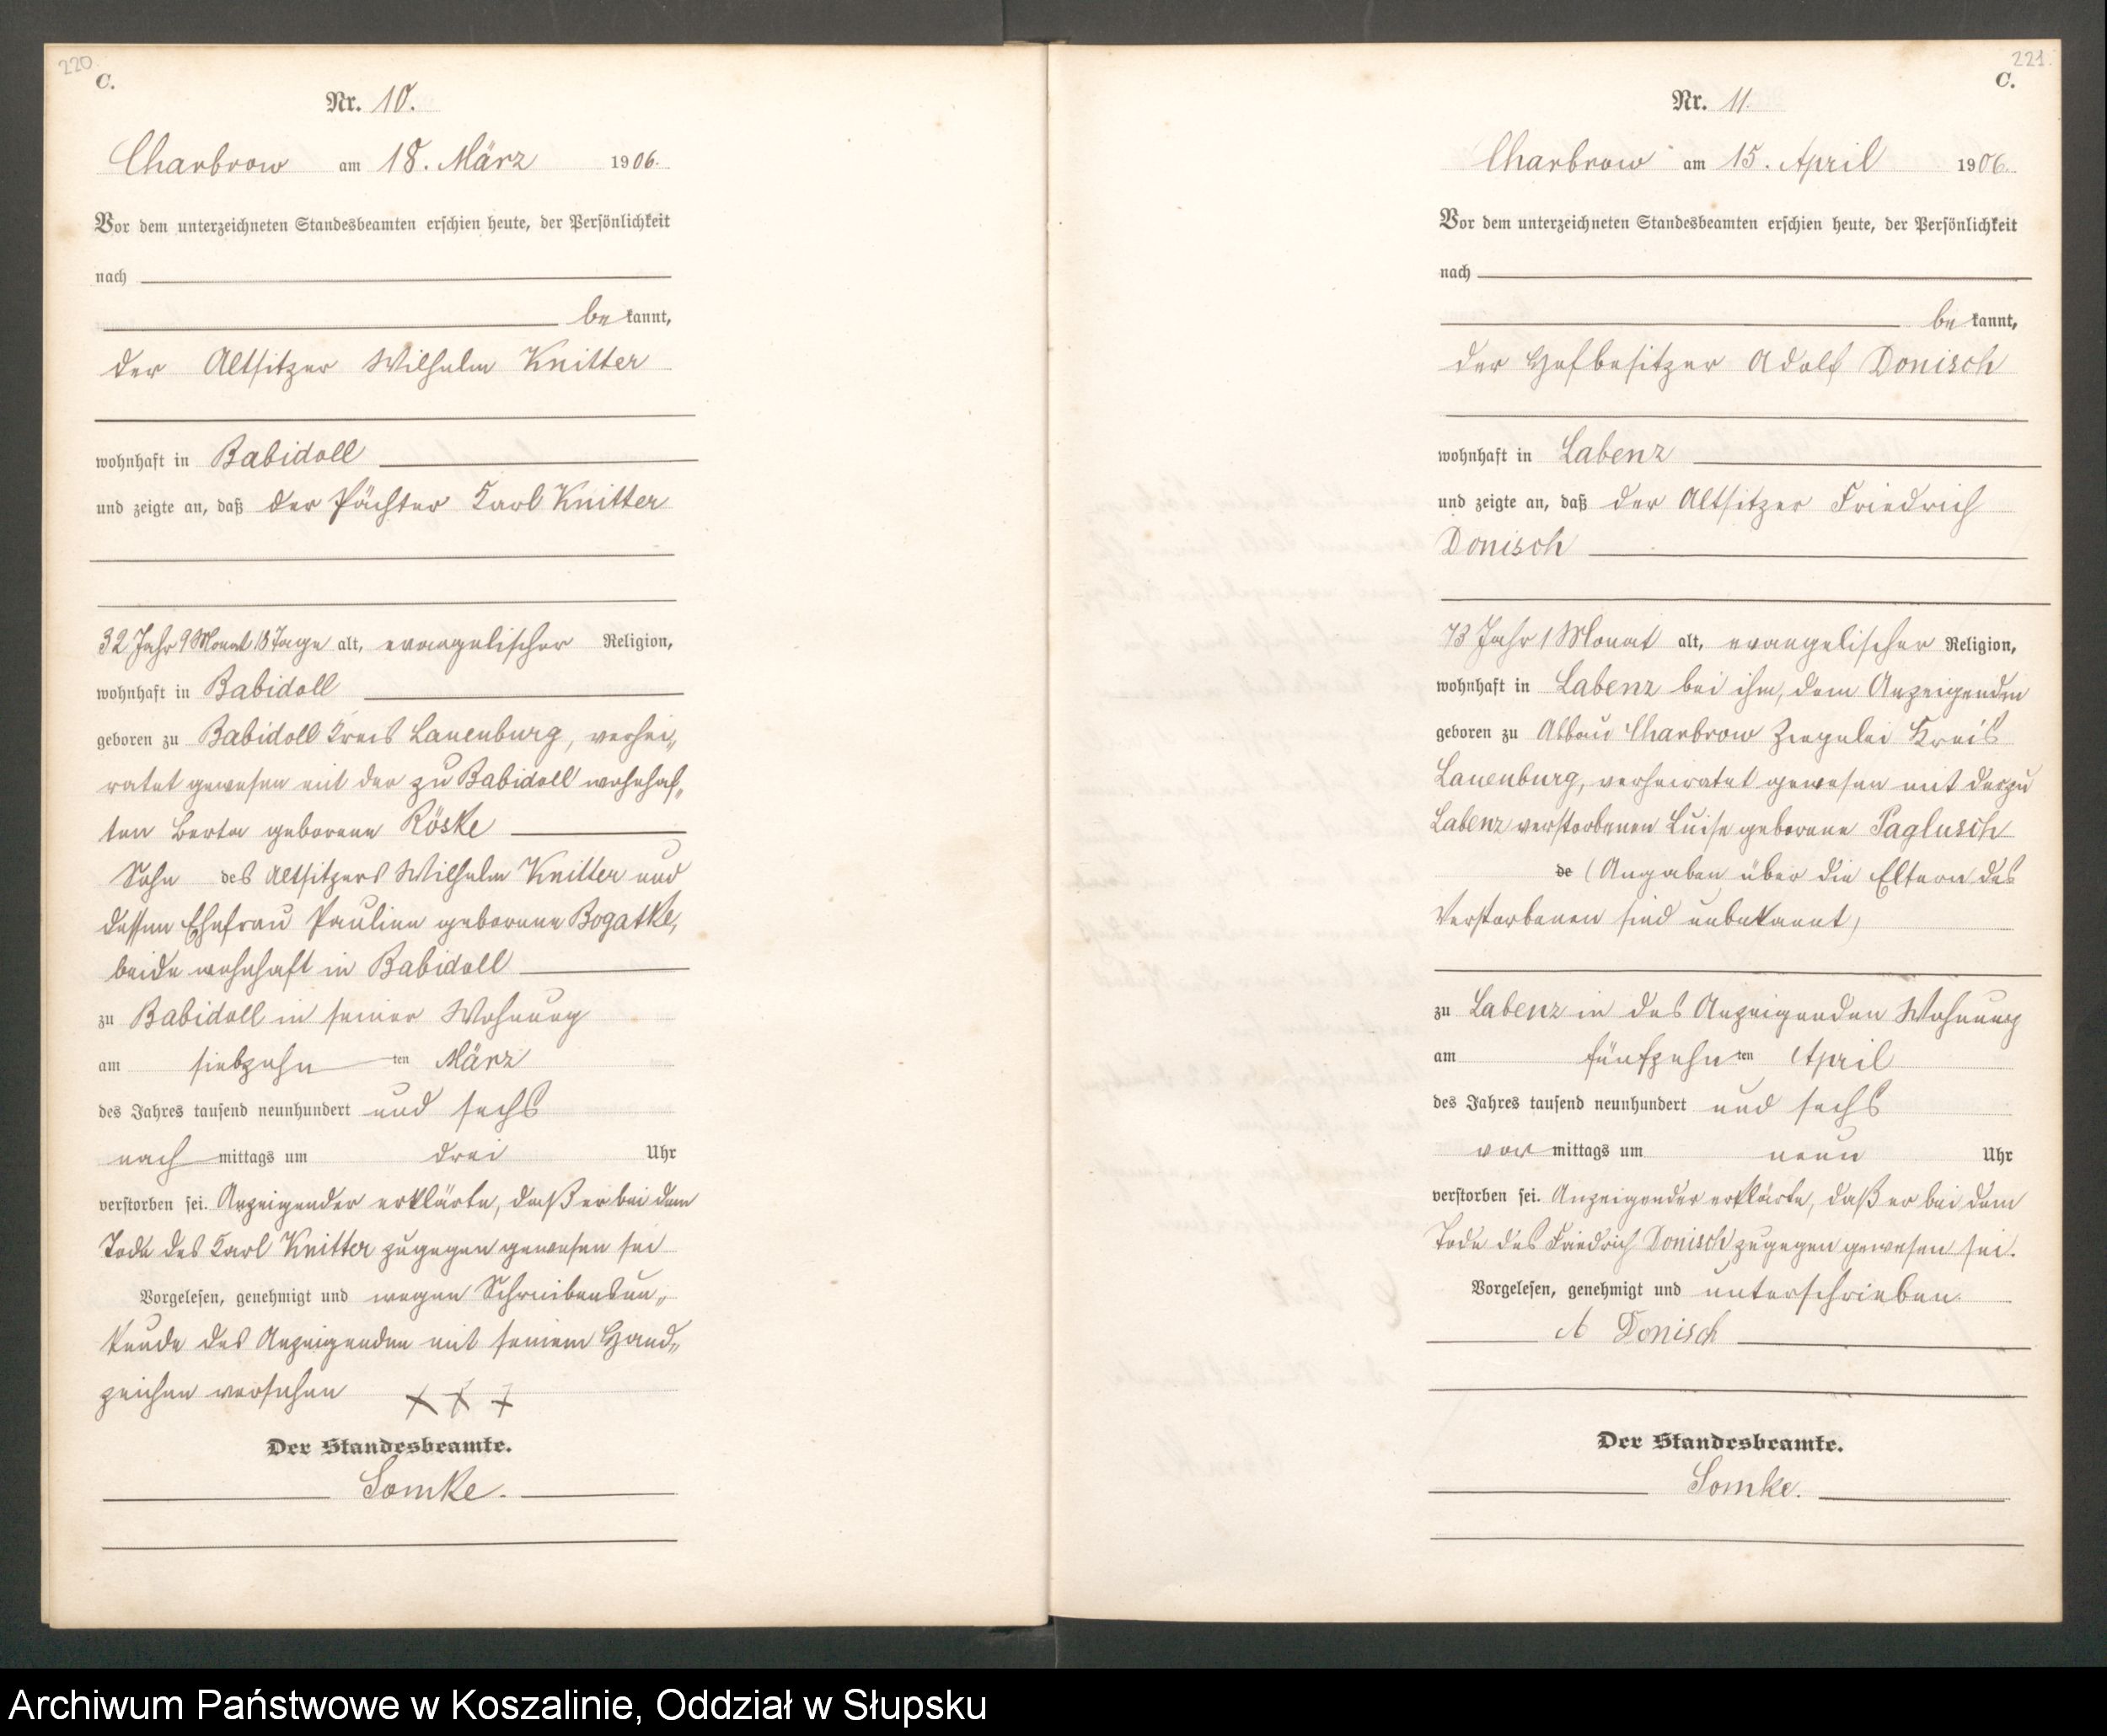 220.
C.
Nr. 10.
Charbrow am 18. März 1906.
Vor dem unterzeichneten Standesbeamten erschien heute, der Persönlichkeit
nach
bekannt,
der Altsitzer Wilhelm Knitter
wohnhaft in Babidoll
und zeigte an, daß der Pächter Karl Knitter
32 Jahr 9 Monat 18 Tage alt, evangelischer Religion,
wohnhaft in Babidoll
geboren zu Babidoll Kreis Lauenburg, verhei„
ratet gewesen mit der zu Babidoll wohnhaf„
ten Berta geborene Röske
Sohn des Altsitzers Wilhelm Knitter und
dessen Ehefrau Pauline geborene Bogatke,
beide wohnhaft in Babidoll
zu Babidoll in seiner Wohnung
am siebzehn ten März
des Jahres tausend neunhundert und sechs
nach mittags um drei Uhr
verstorben sei. Anzeigender erklärte, daß er bei dem
Tode des Karl Knitter zugegen gewesen sei
Vorgelesen, genehmigt und wegen Schreibensun„
kunde des Anzeigenden mit seinem Hand„
zeichen versehen + + +
Der Standesbeamte.
Somke.
221.
C.
Nr. 11.
Charbrow am 15. April 1906.
Vor dem unterzeichneten Standesbeamten erschien heute, der Persönlichkeit
nach
bekannt,
der Hofbesitzer Adolf Donisch
wohnhaft in Labenz
und zeigte an, daß der Altsitzer Friedrich
Donisch
73 Jahr 1 Monat alt, evangelischer Religion,
wohnhaft in Labenz bei ihm, dem Anzeigenden
geboren zu Abbau Charbrow Ziegelei Kreis
Lauenburg, verheiratet gewesen mit der zu
Labenz verstorbenen Luise geborene Paglusch
de (Angaben über die Eltern des
Verstorbenen sind unbekannt)
zu Labenz in des Anzeigenden Wohnung
am fünfzehn ten April
des Jahres tausend neunhundert und sechs
vor mittags um neun Uhr
verstorben sei. Anzeigender erklärte, daß er bei dem
Tode des Friedrich Donisch zugegen gewesen sei.
Vorgelesen, genehmigt und unterschrieben.
A Donisch
Der Standesbeamte.
Somke.
Archiwum Państwowe w Koszalinie, Oddział w Słupsku